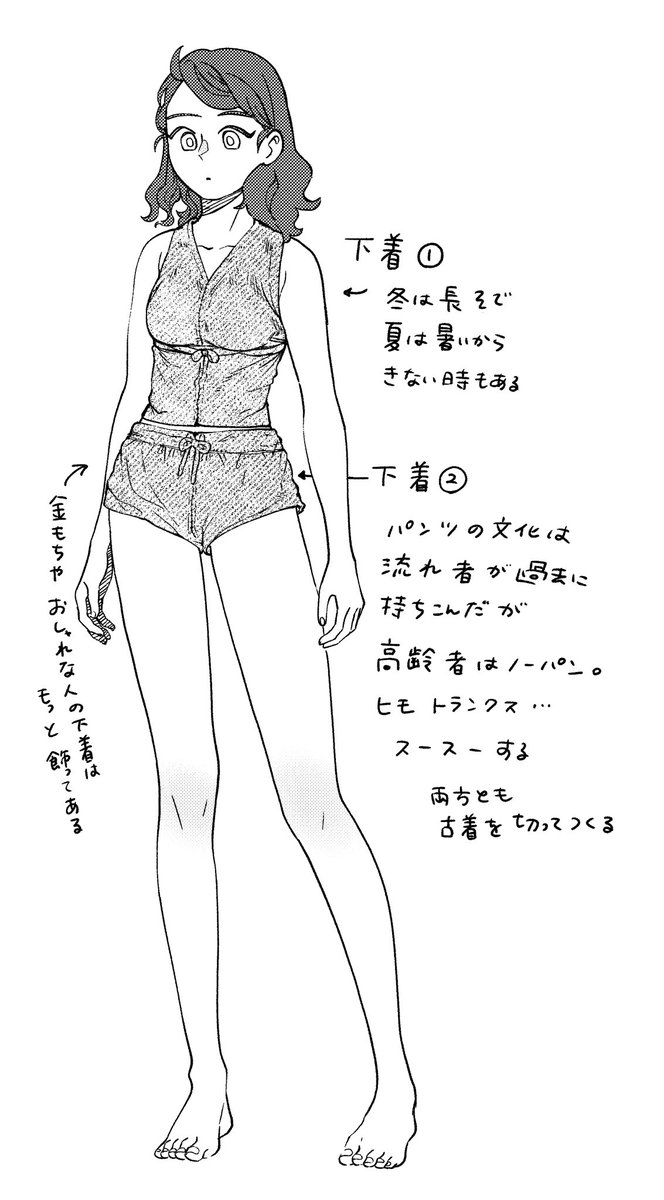 下着①
冬は長そで
夏は暑いから
きない時もある
下着②
パンツの文化は
流れ者が過去に
持ちこんだが
高齢者はノーパン。
ヒモトランクス…
スースーする
両方とも
古着を切ってつくる
金もちや おしゃれな人の下着は
もっと飾ってある